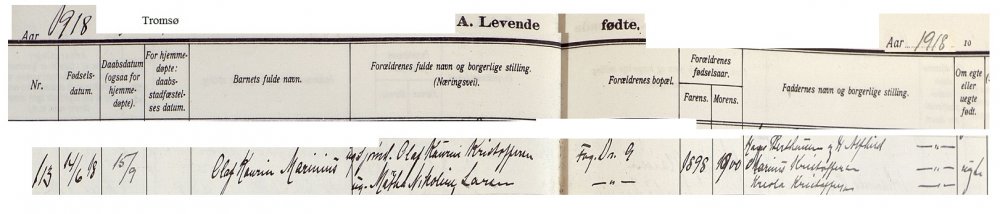 Aar 1918 Tromsø A. Levende fødte. Aar 1918 10
Nr.
Fødsels-
datum.
Daabsdatum
(ogsaa for
hjemme-
døpte).
For hjemme-
døpte:
daabs-
stadfæstel-
ses datum.
Barnets fulde navn.
Forældrenes fulde navn og borgerlige stilling.
(Næringsvei).
Forældrenes bopæl.
Forældrenes
fødselsaar.
Farens.
Morens.
Faddernes navn og borgerlige stilling.
Om egte
eller
uegte
født.
113
14/6 18
15/9
Olaf Kaurin Marinius
Olaf Kaurin Kristoffersen
ug. Nikoline Larsen
1898
1900
Marius Kristoffersen
Kristoffersen
uegte